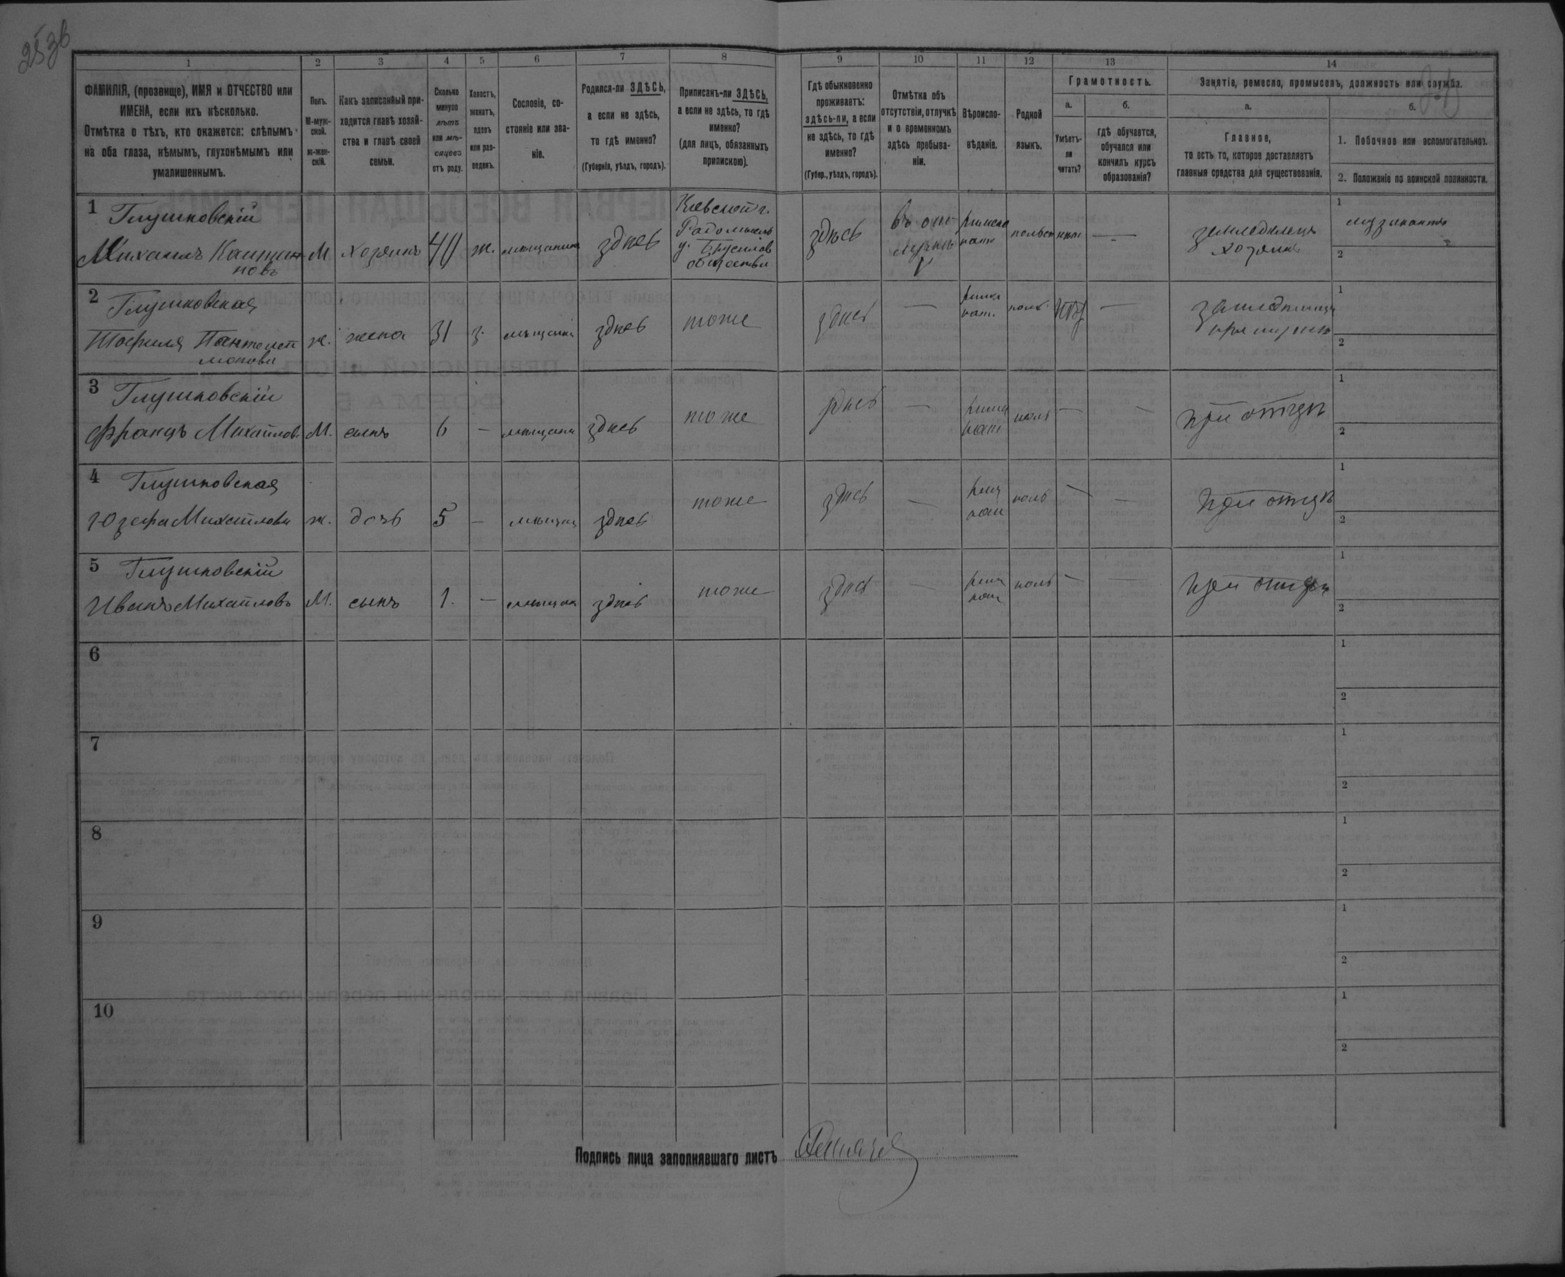 1
ФАМИЛІЯ, (прозвище), ИМЯ и ОТЧЕСТВО или
ИМЕНА, если ихъ нѣсколько.
Отмѣтка о тѣхъ, кто окажется: слѣпымъ
на оба глаза, нѣмымъ, глухонѣмымъ или
умалишеннымъ.
2
Полъ.
М-муж-
ской.
ж-жен-
скій.
3
Какъ записанный при-
ходится главѣ хозяй-
ства и главѣ своей
семьи.
4
Сколько
минуло
лѣтъ
или мѣ-
сяцевъ
отъ роду.
5
Холостъ,
женатъ,
вдовъ
или раз-
веденъ.
6
Сословіе, со-
стояніе или зва-
ніе.
7
Родился-ли ЗДѢСЬ,
а если не здѣсь,
то гдѣ именно?
(Губернія, уѣздъ, городъ).
8
Приписанъ-ли ЗДѢСЬ,
а если не здѣсь, то гдѣ
именно?
(для лицъ, обязанныхъ
припискою).
9
Гдѣ обыкновенно
проживаетъ:
здѣсь-ли, а если
не здѣсь, то гдѣ
именно?
(Губер., уѣздъ, городъ).
10
Отмѣтка объ
отсутствіи, отлучкѣ
и о временномъ
здѣсь пребыва-
ніи.
11
Вѣроиспо-
вѣданіе.
12
Родной
языкъ.
13
Грамотность.
а.
Умѣетъ-
ли
читать?
б.
гдѣ обучается,
обучался или
кончилъ курсъ
образованія?
14
Занятія, ремесло, промыселъ, должность или служба.
а.
Главное,
то есть то, которое доставляетъ
главныя средства для существованія.
б.
1. Побочное или вспомогательное.
2. Положеніе по воинской повинности.
1
Глушковскій
Михаилъ
М.
хозяинъ
40
ж.
мѣщанинъ
здѣсь
Кіевской г.
у.
здѣсь
нѣтъ
хозяинъ
1
музыкантъ
2
2
Глушковская
ж.
жена
31
з.
здѣсь
тоже
здѣсь
—
—
1
2
3
Глушковскій
Францъ Михайлов.
М.
сынъ
6
—
здѣсь
тоже
здѣсь
—
—
—
при отцѣ
1
2
4
Глушковская
Юзефа Михайлова
ж.
дочь
5
—
здѣсь
тоже
здѣсь
—
—
—
при отцѣ
1
2
5
Глушковскій
Иванъ Михайловъ
М.
сынъ
1.
—
здѣсь
тоже
здѣсь
—
—
—
при отцѣ
1
2
6
1
2
7
1
2
8
1
2
9
1
2
10
1
2
Подпись лица заполнявшаго листъ